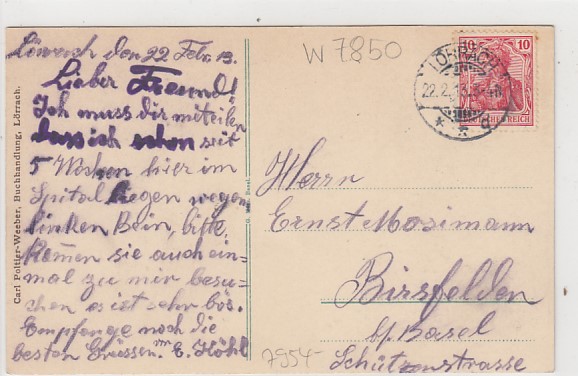 Lörrach den 22 Febr. 13.
Lieber Freund!
Ich muss dir mitteilen
dass ich schon seit
5 Wochen hier im
Spital liegen wegen
linken Bein, bitte
komen sie auch ein=
mal zu mir besu=
chen es ist sehr bös.
Empfange noch die
besten Grüssen. von E. Köhl
Carl Poltier-Weeber, Buchhandlung, Lörrach.
W 7850
10 10
DEUTSCHES REICH
LÖRRACH
22.2.13.3-4N
* * d
Herrn
Ernst Mosimann
Birsfelden
b/Basel
Schützenstrasse
7954-